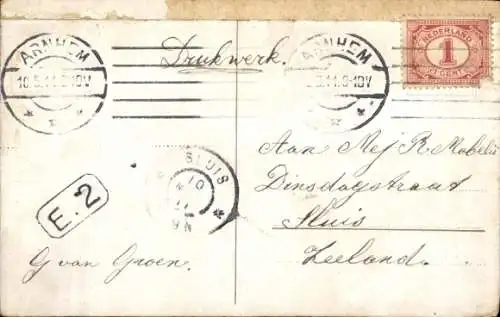 ARNHEM
10.5.11.9-10V
Drukwerk.
ARNHEM
5.11.9-10V
NEDERLAND
1
CENT
SLUIS
10
11
9N
E.2
G van Groen.
Aan Mej R Mabelis
Dinsdagstraat
Sluis
Zeeland.